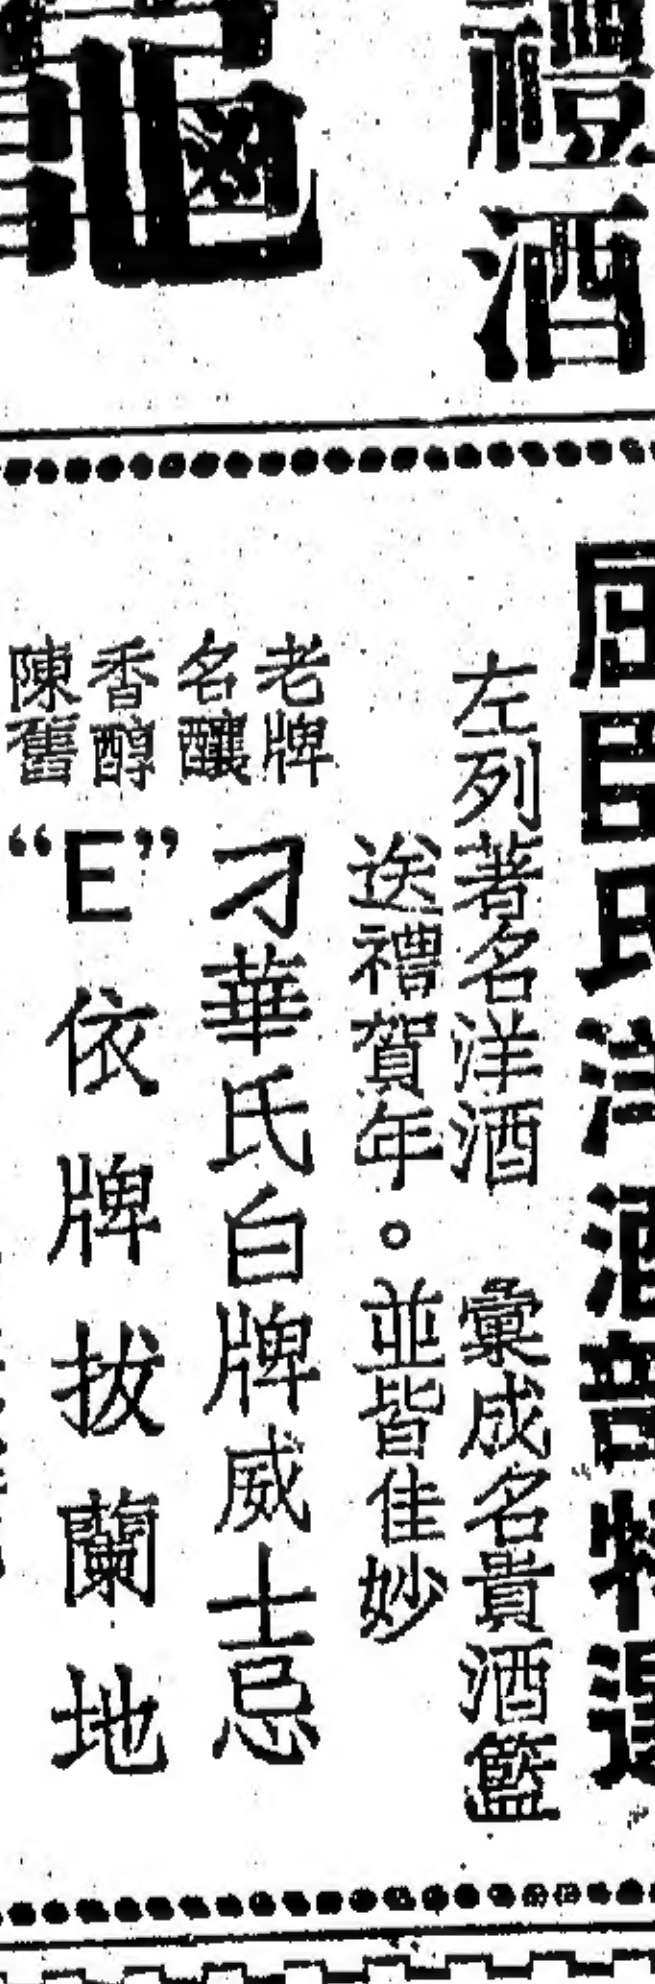 禮酒
屈臣氏洋酒部特選
左列著名洋酒 彙成名貴酒籃
送禮賀年。並皆佳妙
老牌
名釀
刁華氏白牌威士忌
香醇
陳舊
“E”依牌拔蘭地